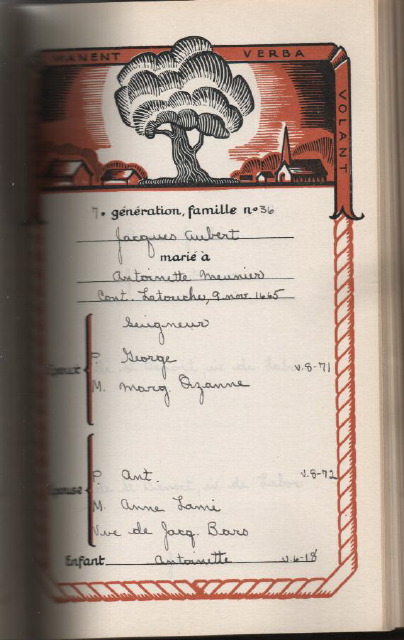 MANENT VERBA VOLANT
7e génération, famille no 36
Jacques Aubert
marié à
Antoinette Meunier
Cont. Latouche, 9 nov. 1665
Seigneur
P. George v.8-71
M. Marg. Dizanne
P. Ant. v.8-72
M. Anne Lami
Vve de Jacq. Bars
Enfant Antoinette v.6-18